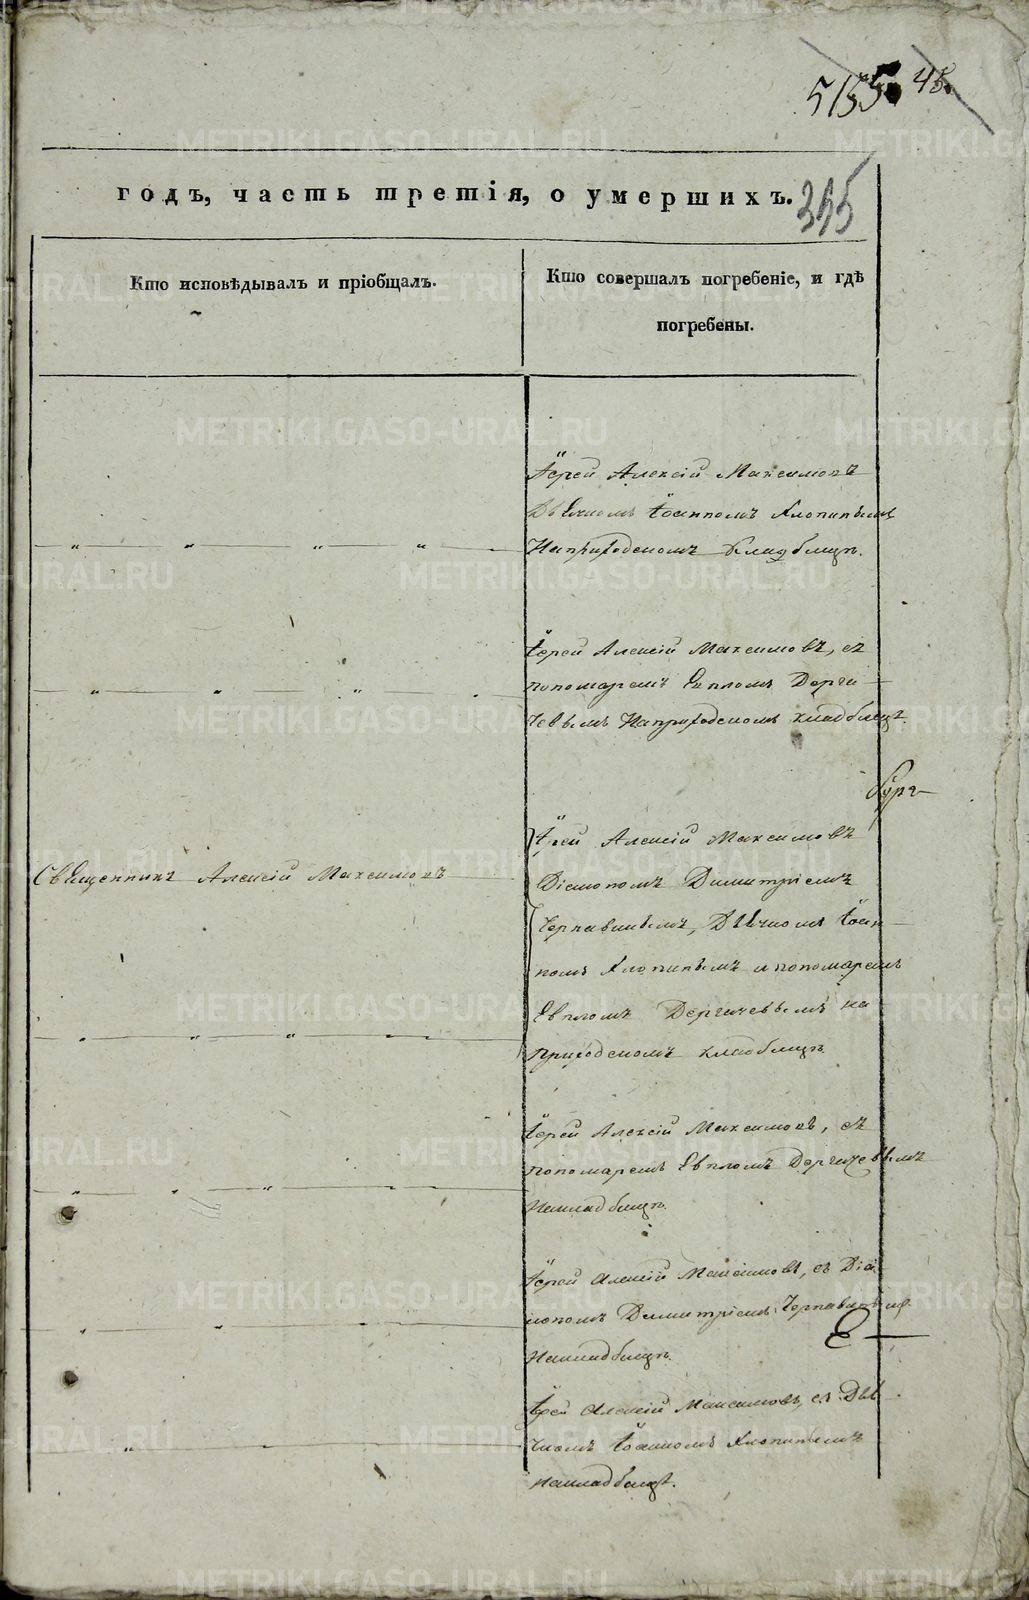 5155. 45.
годъ, часть третія, о умершихъ. 355
Кто исповѣдывалъ и пріобщалъ.
Кто совершалъ погребеніе, и гдѣ
погребены.
Іерей Алексій Максимовъ
Іоанномъ Клопинымъ
На приходскомъ кладбищѣ.
Іерей Алексій Максимовъ, съ
пономаремъ Евпломъ Дерги
чевымъ На приходскомъ кладбищѣ
Священникъ Алексій Максимовъ
Іерей Алексій Максимовъ
Діакономъ Димитріемъ
Чернавинымъ, Дьячкомъ Іоан
номъ Клопинымъ и пономаремъ
Евпломъ Дергичевымъ на
приходскомъ кладбищѣ
Іерей Алексій Максимовъ, съ
пономаремъ Евпломъ Дергичевымъ
На кладбищѣ.
Іерей Алексій Максимовъ, съ Діа
кономъ Димитріемъ Чернавинымъ.
На кладбищѣ.
Іерей Алексій Максимовъ, съ Дья
чкомъ Іоанномъ Клопинымъ
на кладбищѣ.
METRIKI.GASO-URAL.RU